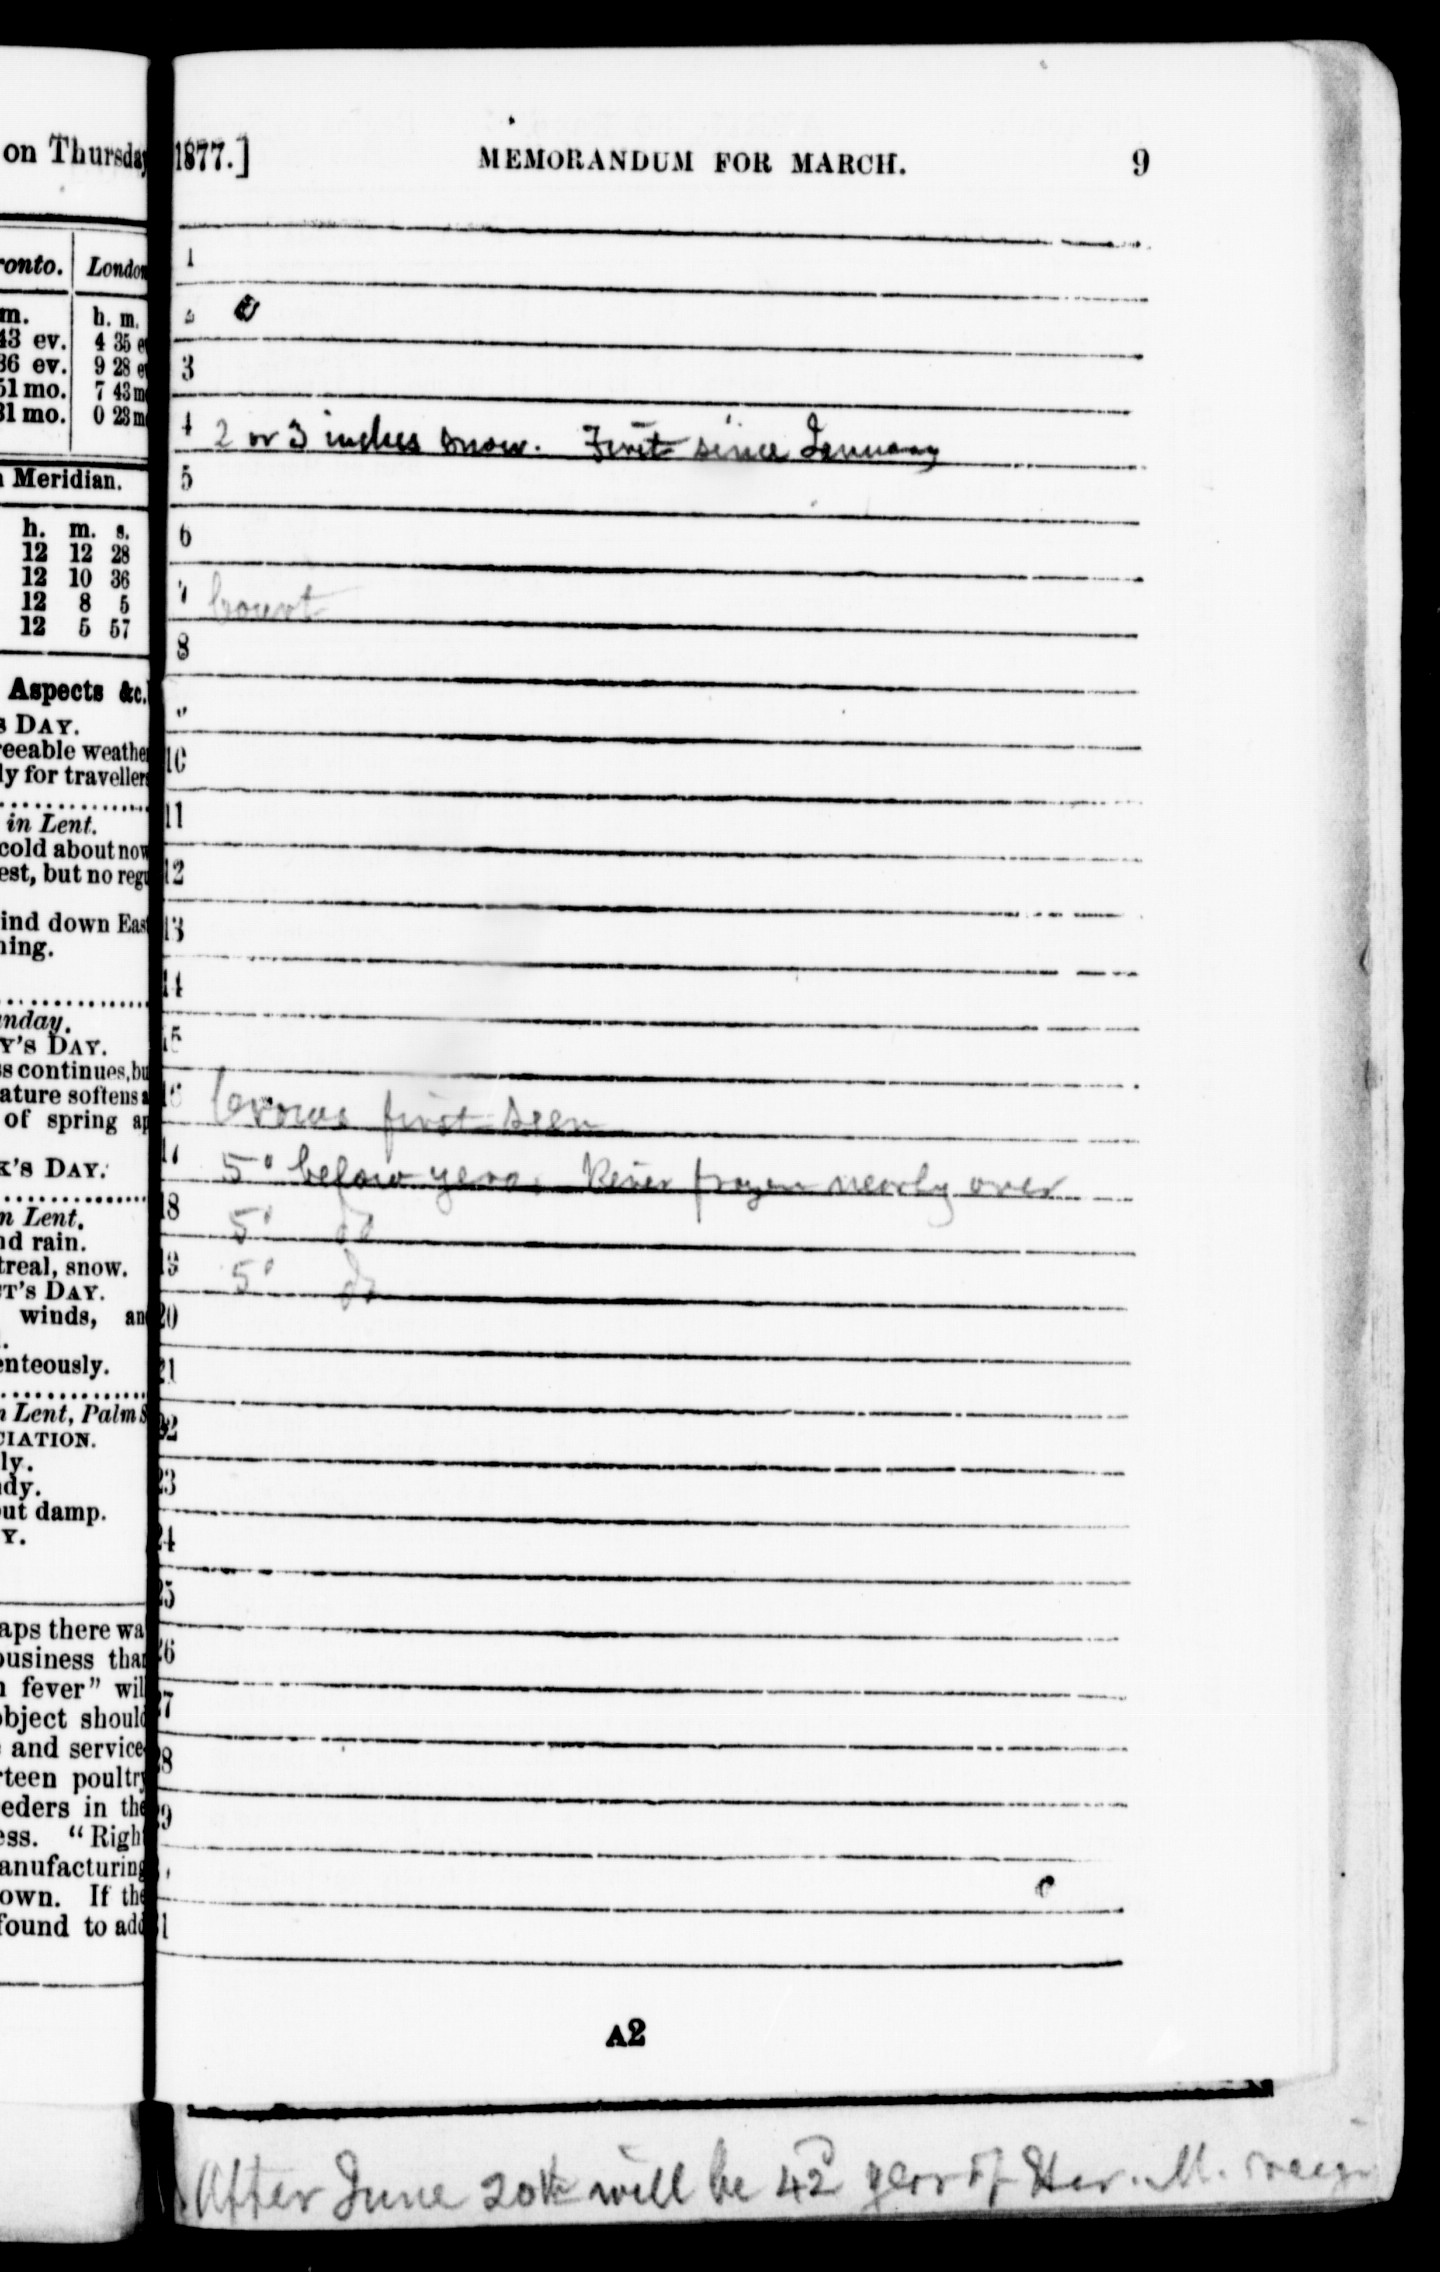 on Thursday
ronto. London
m. h. m.
43 ev. 4 35 e
36 ev. 9 28 e
51 mo. 7 43 m
31 mo. 0 23 m
Meridian.
h. m. s.
12 12 28
12 10 36
12 8 5
12 5 57
Aspects &c.
S DAY.
reeable weather
ly for travellers
in Lent.
cold about now
est, but no regu
ind down East
ning.
unday.
Y'S DAY.
ss continues, bu
ature softens a
of spring ap
K'S DAY.
n Lent.
nd rain.
treal, snow.
T'S DAY.
winds, an
enteously.
n Lent, Palm S
CIATION.
ly.
dy.
out damp.
Y.
aps there wa
business than
n fever" will
object should
and service
rteen poultry
eeders in the
ess. "Right
anufacturing
own. If the
found to add
1877.] MEMORANDUM FOR MARCH. 9
1
2
3
4 2 or 3 inches snow. First since January
5
6
7 Court
8
10
11
12
13
14
15
16 Crows first seen
17 5° below zero. River frozen nearly over
18 5° do
19 5° do
20
21
22
23
24
25
26
27
28
29
31
A2
After June 20th will be 42 year of Her. M. reign